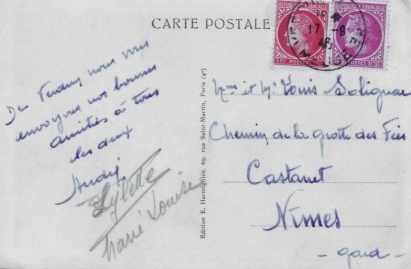 CARTE POSTALE
De Verdun nous vous
envoyons nos bonnes
amitiés à tous
les deux
André
Sylette
Marie Louise
Edition E. Hermighies, 69, rue Saint-Martin, Paris (4e)
Mme et Mr Louis Solignac
Chemin de la grotte des Fées
Castanet
Nîmes
- Gard -